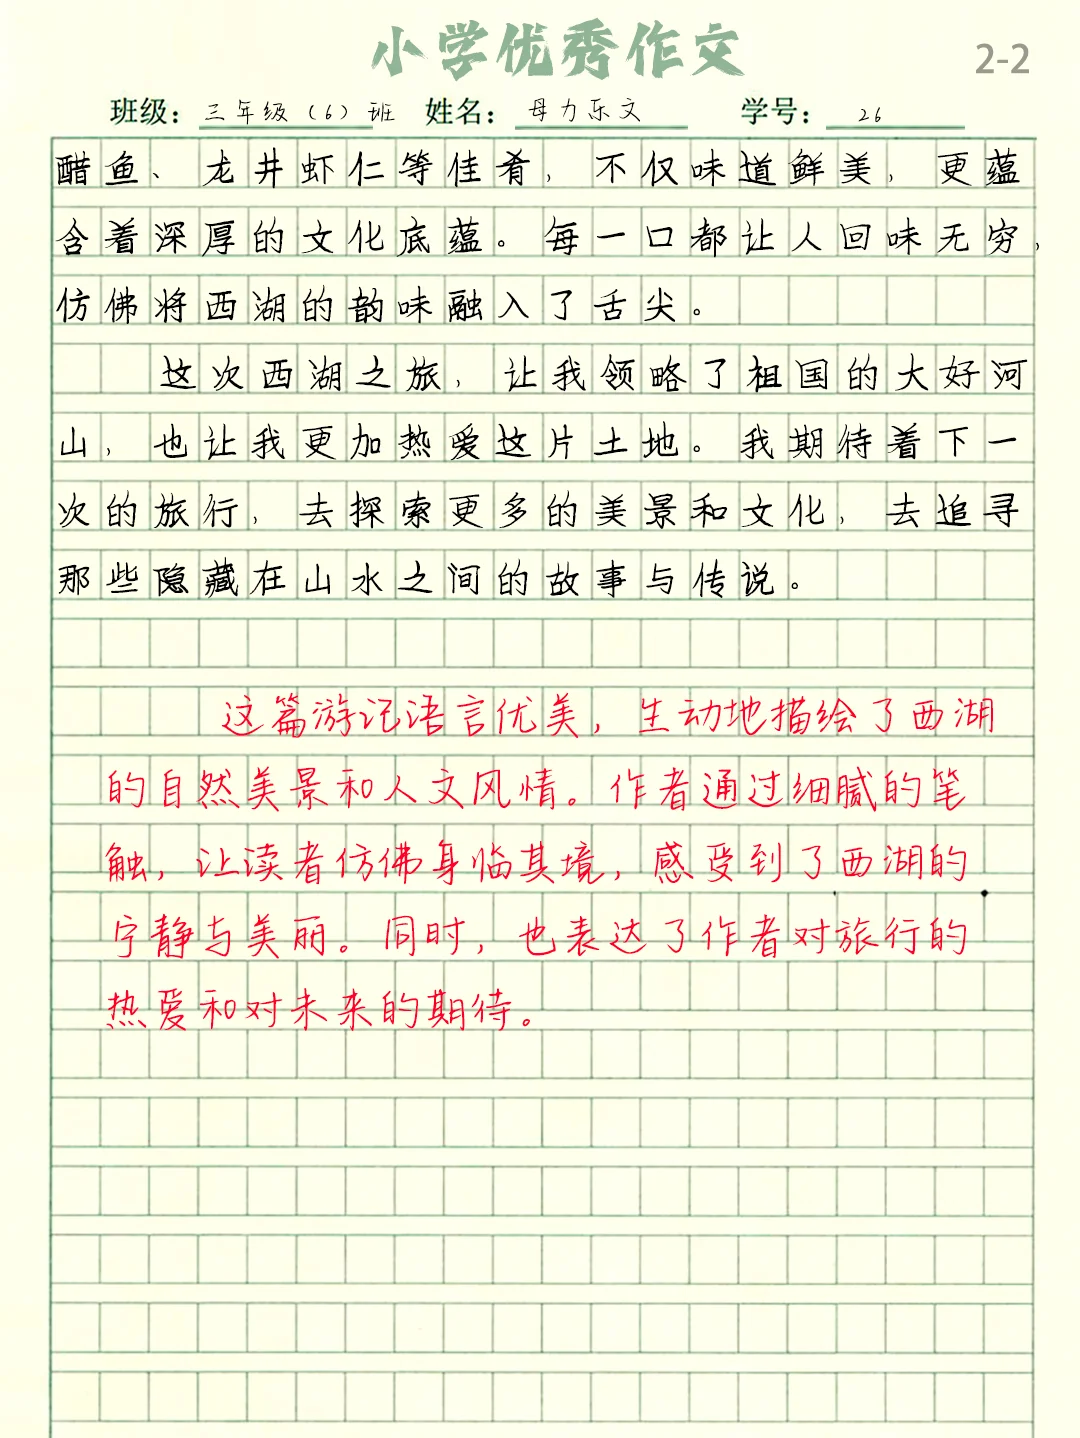 小学优秀作文
2-2
班级：三年级（6）班 姓名：母力乐文 学号：26
醋鱼、龙井虾仁等佳肴，不仅味道鲜美，更蕴
含着深厚的文化底蕴。每一口都让人回味无穷，
仿佛将西湖的韵味融入了舌尖。
这次西湖之旅，让我领略了祖国的大好河
山，也让我更加热爱这片土地。我期待着下一
次的旅行，去探索更多的美景和文化，去追寻
那些隐藏在山水之间的故事与传说。
这篇游记语言优美，生动地描绘了西湖
的自然美景和人文风情。作者通过细腻的笔
触，让读者仿佛身临其境，感受到了西湖的
宁静与美丽。同时，也表达了作者对旅行的
热爱和对未来的期待。